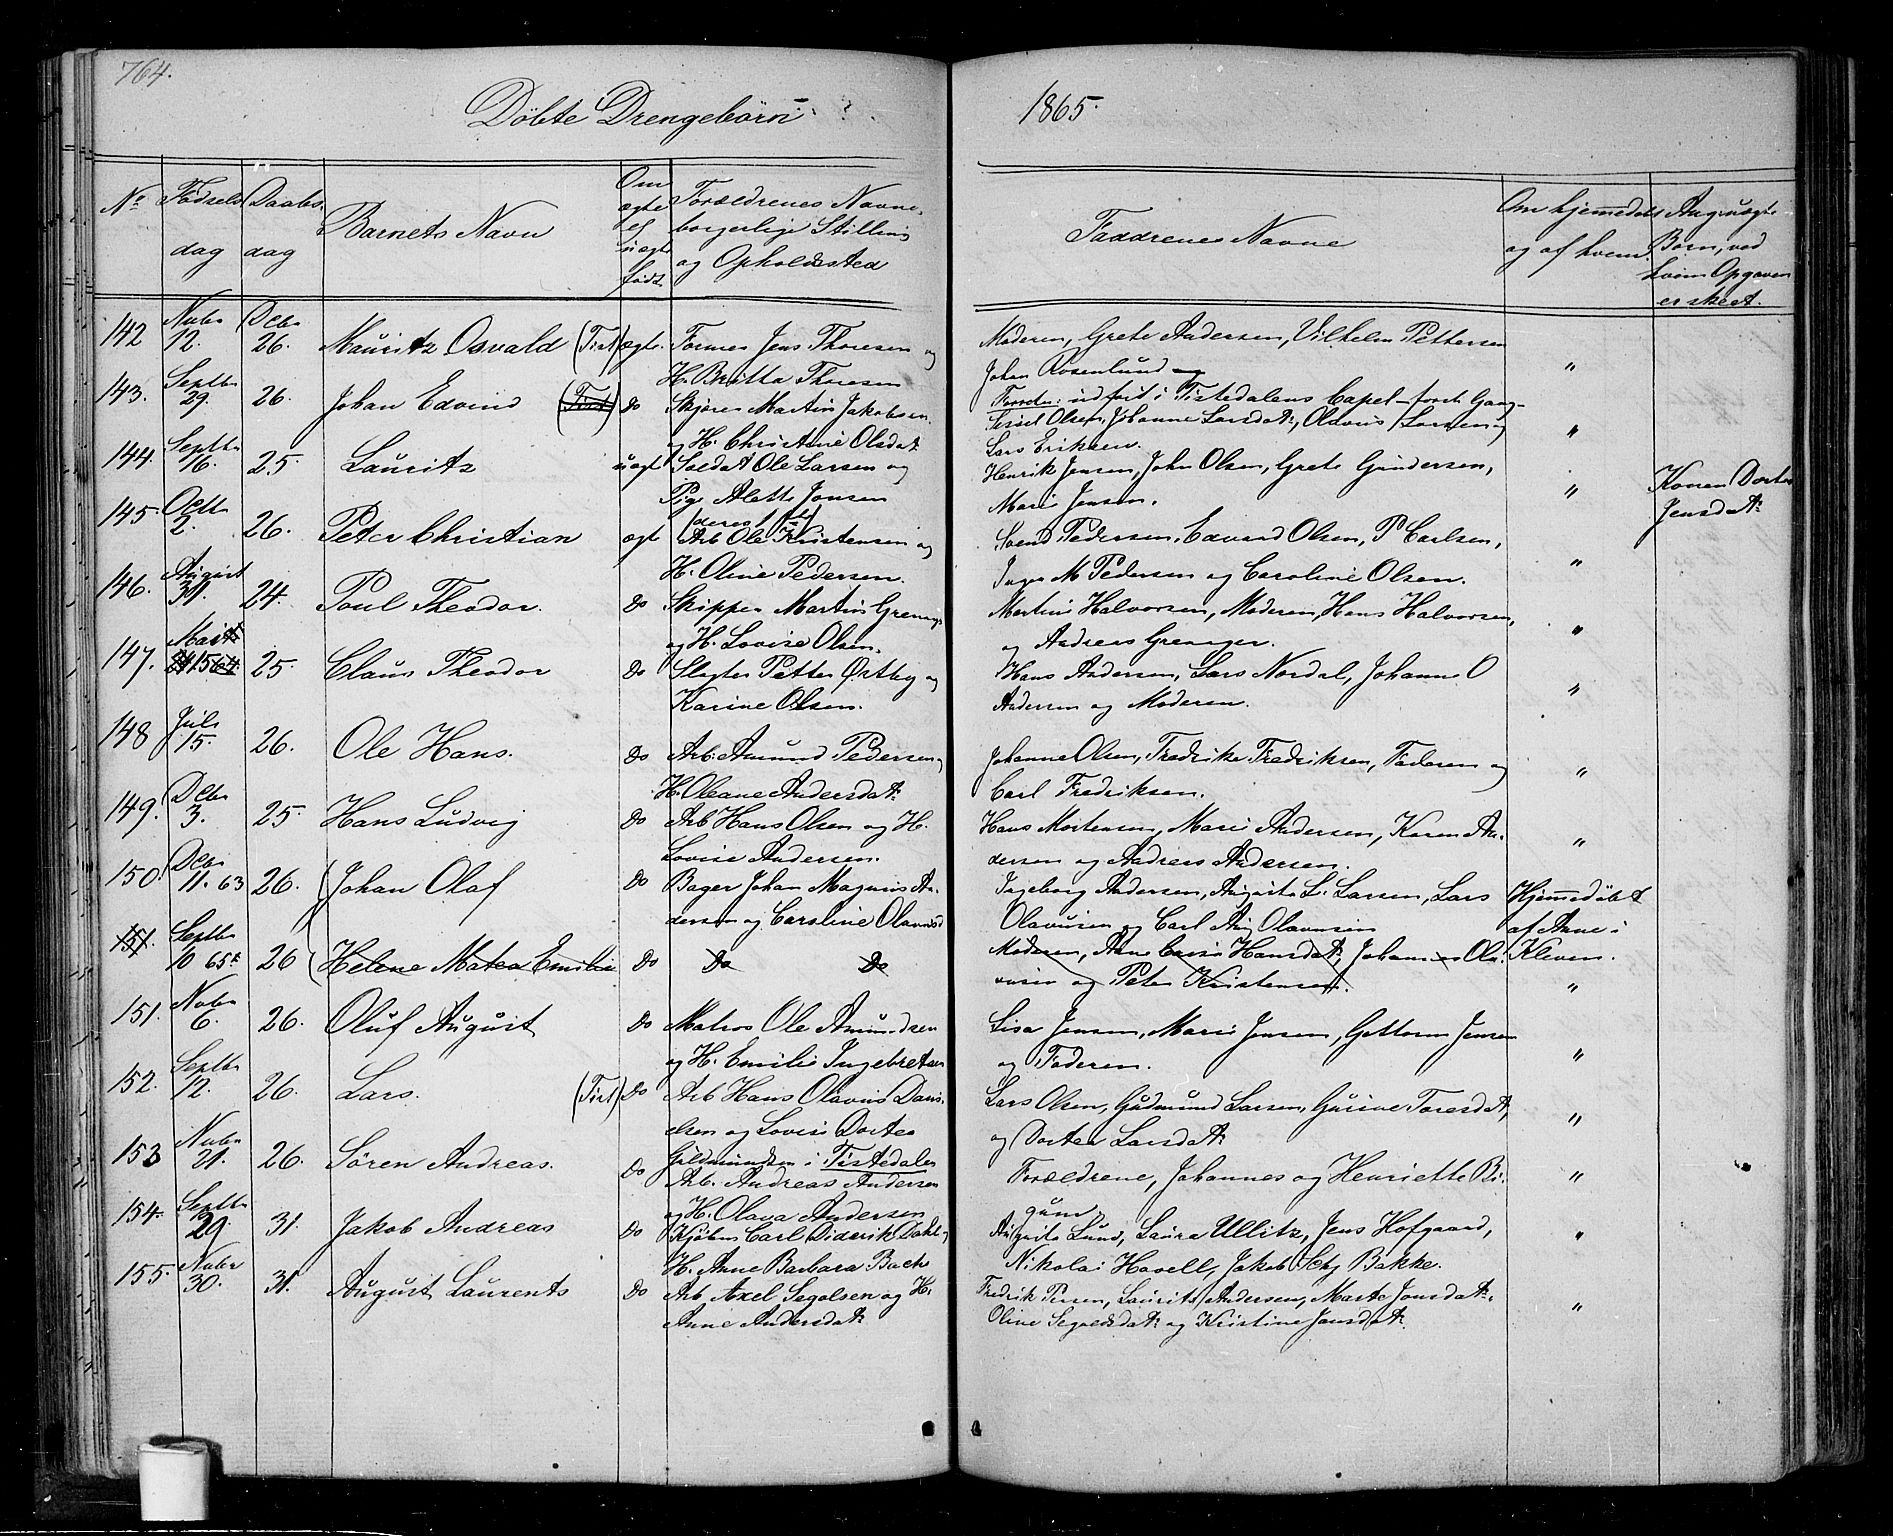 764.
Döbte Drengebörn
1865.
No Födsels dag Daabs dag Barnets Navn Om ægte el uægte född Forældrenes Navne, borgerlige Stilling og Opholdssted
Faddrenes Navne Om hjemmedøbt og af hvem. Ang. uægte Børn, ved hvem Opgaven er skeet.
142 Nvbr 12. Dcbr 26. Mauritz Osvald (Tist) ægte. Former Jens Thoresen og
H. Britta Thoresen
Moderen, Grete Andersen, Vilhelm Pettersen
Johan Rosenlund "
143. Septbr 29. 26. Johan Edvind (Tist) Do Skjörer Martin Jakobsen
og H. Christine Olsdat
udfört i Tistedalens Capel
Olsen, Johanne Larsdat, Olavus Larsen og
Lars Eriksen. "
144. Septbr 16. 25. Lauritz uægt Soldat Ole Larsen og
Pige Alette Jonsen
Henrik Jensen, John Olsen, Grete Gundersen,
Marie Jensen. " Karen Dortea
Jensdat
145. Octbr 2. 26. Peter Christian ægte Arb Ole Kristensen og
H. Oline Pedersen.
Svend Pedersen, Edvard Olsen, P Carlsen,
Inger M Pedersen og Caroline Olsen. "
146. August 31. 24. Poul Theodor. Do Skipper Martin Grenager
og H. Lovise Olsen.
Martine Halvorsen, Moderen, Hans Halvorsen,
og Andreas Grenager. "
147. 15 64. 25. Claus Theodor Do Slagter Petter Østby og
Karine Olsen.
Hans Andersen, Lars Nordal, Johanne O
Andersen og Moderen. "
148 Juli 15. 26. Ole Hans. Do Arb. Amund Pedersen og
H. Oleane Andersdat
Johanne Olsen, Fredrike Fredriksen, Faderen og
Carl Fredriksen. "
149. Dcbr 3. 25. Hans Ludvig Do Arb Hans Olsen og H.
Lovise Andersen.
Hans Mortensen, Marie Andersen, Karen An-
dersen og Andreas Andersen. "
150. Dcbr 11. 63 26. (Johan Olaf Do Bager Johan Magnus An-
dersen og Caroline Olavusd
Ingeborg Andersen, Augusta L. Larsen, Lars
Olavusen og Carl Aug Olavusen
Hjemmedöbt
af Anne i
Kleven.
151. Septbr 10 65. 26 (Helene Matea Emilie Do Do Do
Moderen, Anne Hansdat, Johannes Ola-
vusen og Peter Kristensen. "
151. Nvbr 6. 26. Oluf August Do Matros Ole Amundsen
og H. Emilie Ingebretsen
Lisa Jensen, Marie Jensen, Gottorm Jensen
og Faderen. "
152. Septbr 12. 26. Lars. (Tist) Do Arb Hans Olavus Dani-
elsen og Lovise Dortea
Guldmundsen i Tistedalen
Lars Olsen, Gudmund Larsen, Gurine Toresdat,
og Dortea Larsdat "
153 Nvbr 21. 26. Sören Andreas. Do Arb. Andreas Andersen
og H. Olava Andersen
Forældrene, Johannes og Henriette Bi-
gum. "
154. Septbr 29. 31. Jakob Andreas Do Kjøbm Carl Diderik Dahl og
H. Anne Barbara Bache
Augusta Lund, Laura Ullitz, Jens Hofgaard,
Nikolai Havell, Jakob Bakke. "
155. Nvbr 30. 31. August Laurents Do Arb Axel Segolsen og H.
Anne Andersdat
Fredrik Persen, Lauritz Andersen, Marte Jonsdat.
Oline Segoldsdat og Kristine Jonsdat. "